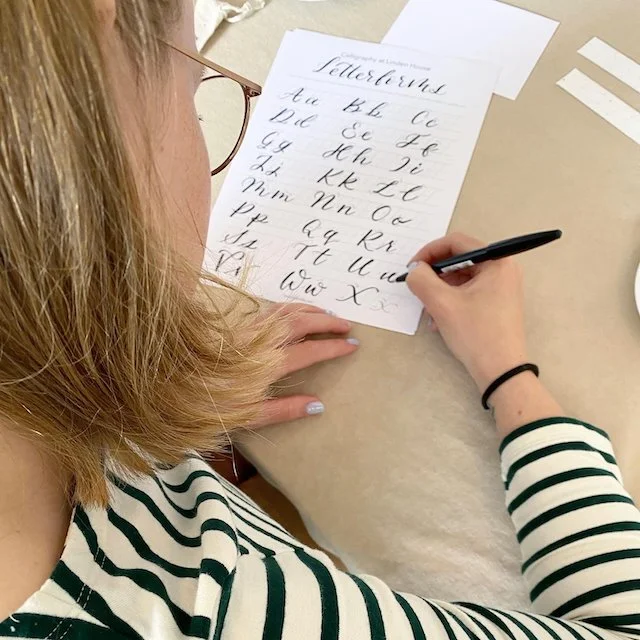 Calligraphy at Linden House
Letterforms
Aa Bb Cc
Dd Ee Ff
Gg Hh Ii
Jj Kk Ll
Mm Nn Oo
Pp Qq Rr
Ss Tt Uu
Vv Ww Xx